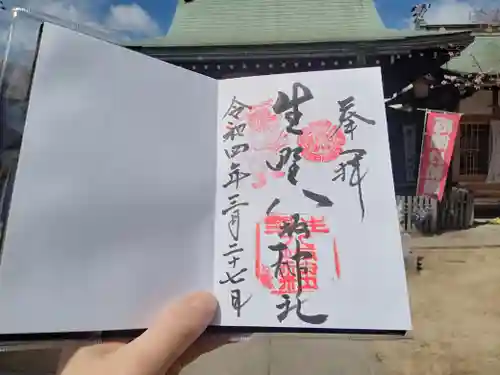 奉拝
生野八幡神社
令和四年三月二十七日